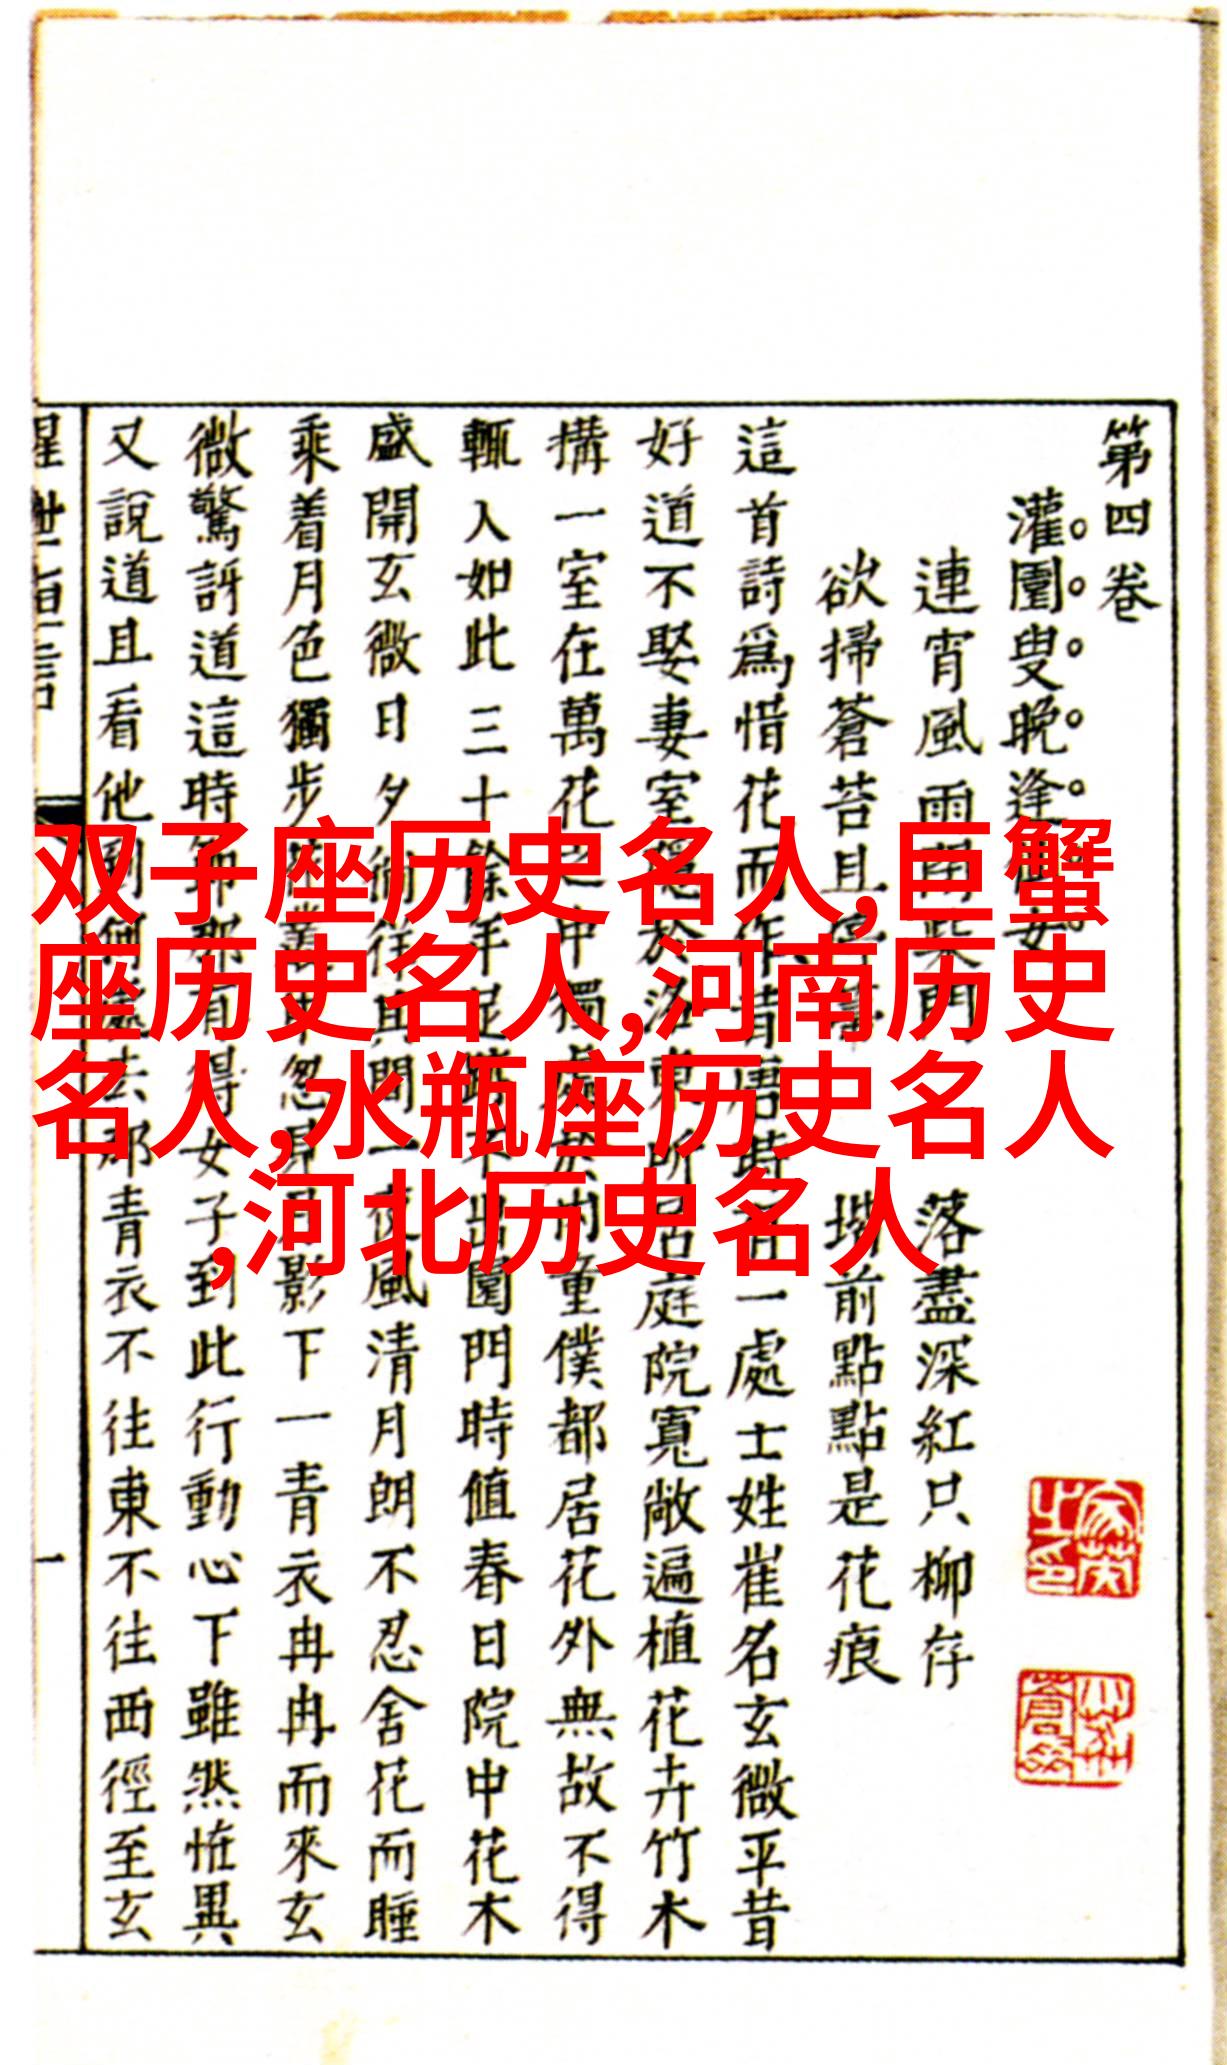 双子座历史名人,巨蟹
座历史名人,河南历史
名人,水瓶座历史名人
,河北历史名人
第四卷
灌園叟晚逢女
連宵風雨門 落盡深紅只柳存
欲掃蒼苔且 堦前點點是花痕
這首詩爲惜花而作昔唐時一處士姓崔名玄微平昔
好道不娶妻室於洛東所居庭院寬敞遍植花卉竹木
搆一室在萬花之中獨處於內童僕都居花外無故不得
輒入如此三十餘年足不出園門時值春日院中花木
盛開玄微日夕徜徉其間一夜風清月朗不忍舍花而睡
乘着月色獨步忽影下一青衣冉冉而來玄
微驚訝道這時節那有得女子到此行動心下雖然恠異
又說道且看他到何處去那青衣不往東不往西徑至玄
醒世恒言
一